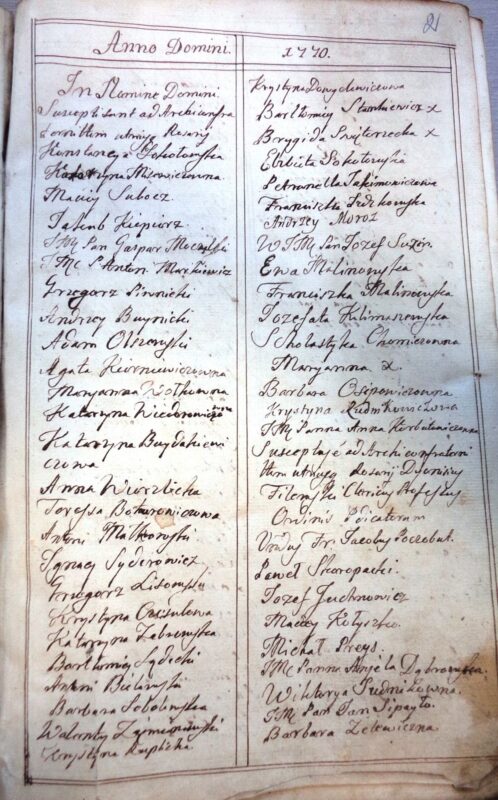 21
Anno Domini. 1770.
In Nomine Domini
Suscepti sunt ad Archiconfra
ternitatem utriusq Rosarij
Konstancya Sokołowska
Katarzyna Misiewiczowna
Maciey Subocz
Jakub Kiepiorz
JMć Pan Gaspar
JMć P. Antoni Markiewicz
Grzegorz Pinnicki
Andrzey Baynicki
Adam Olszewski
Agata
Maryanna Wołkowna
Katarzyna
Katarzyna Baydakiewi
czowa
Anna Wierzbicka
Teressa Bohurewiczowa
Antoni Małkowski
Ignacy Syderowicz
Grzegorz Lisowski
Krystyna
Katarzyna Zabrowska
Bartłomiey Sydecki
Antoni Bielawski
Barbara Sobolewska
Walenty
Krystyna Rupłicka
Krystyna Dowgdewiczowa
Bartłomiey Stankiewicz x
Brygida Swiątecka x
Elżbieta Sokołowska
Petronella Jakimowiczowa
Franciszka
Andrzey Moroz
W JMć Pan Jozef Suzin
Ewa Malinowska
Franciszka Malinowska
Jozefata Klimaszewska
Scholastyka Chomiczowna
Maryanna x
Barbara Osipowiczowna
Krystyna Rudnikowiczowa
JMć Panna Anna
Susceptus e ad Archiconfraterni
tatem utriusq Rosarij Dionisius
Filemski Clericus Professus
Ordinis Pdicatorum
Fr. Jacobus Poczobut.
Paweł Skoropacki.
Jozef Juchnowicz
Maciey Kołyszko.
Michał Preys.
JMć Panna Anjela Dąbrowska.
Wiktorya Sudnikowna.
JMć Pan Jan Sipayło.
Barbara Zelewiczna